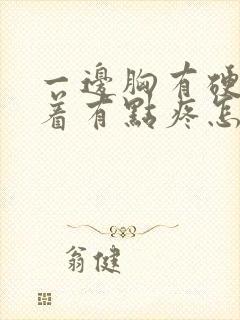 一邊胸有硬
着有點疼怎
翁健